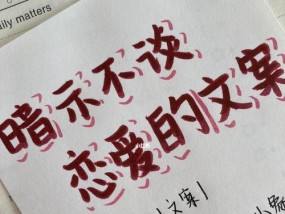 ily matters
暗示不谈
恋爱的文案
文案